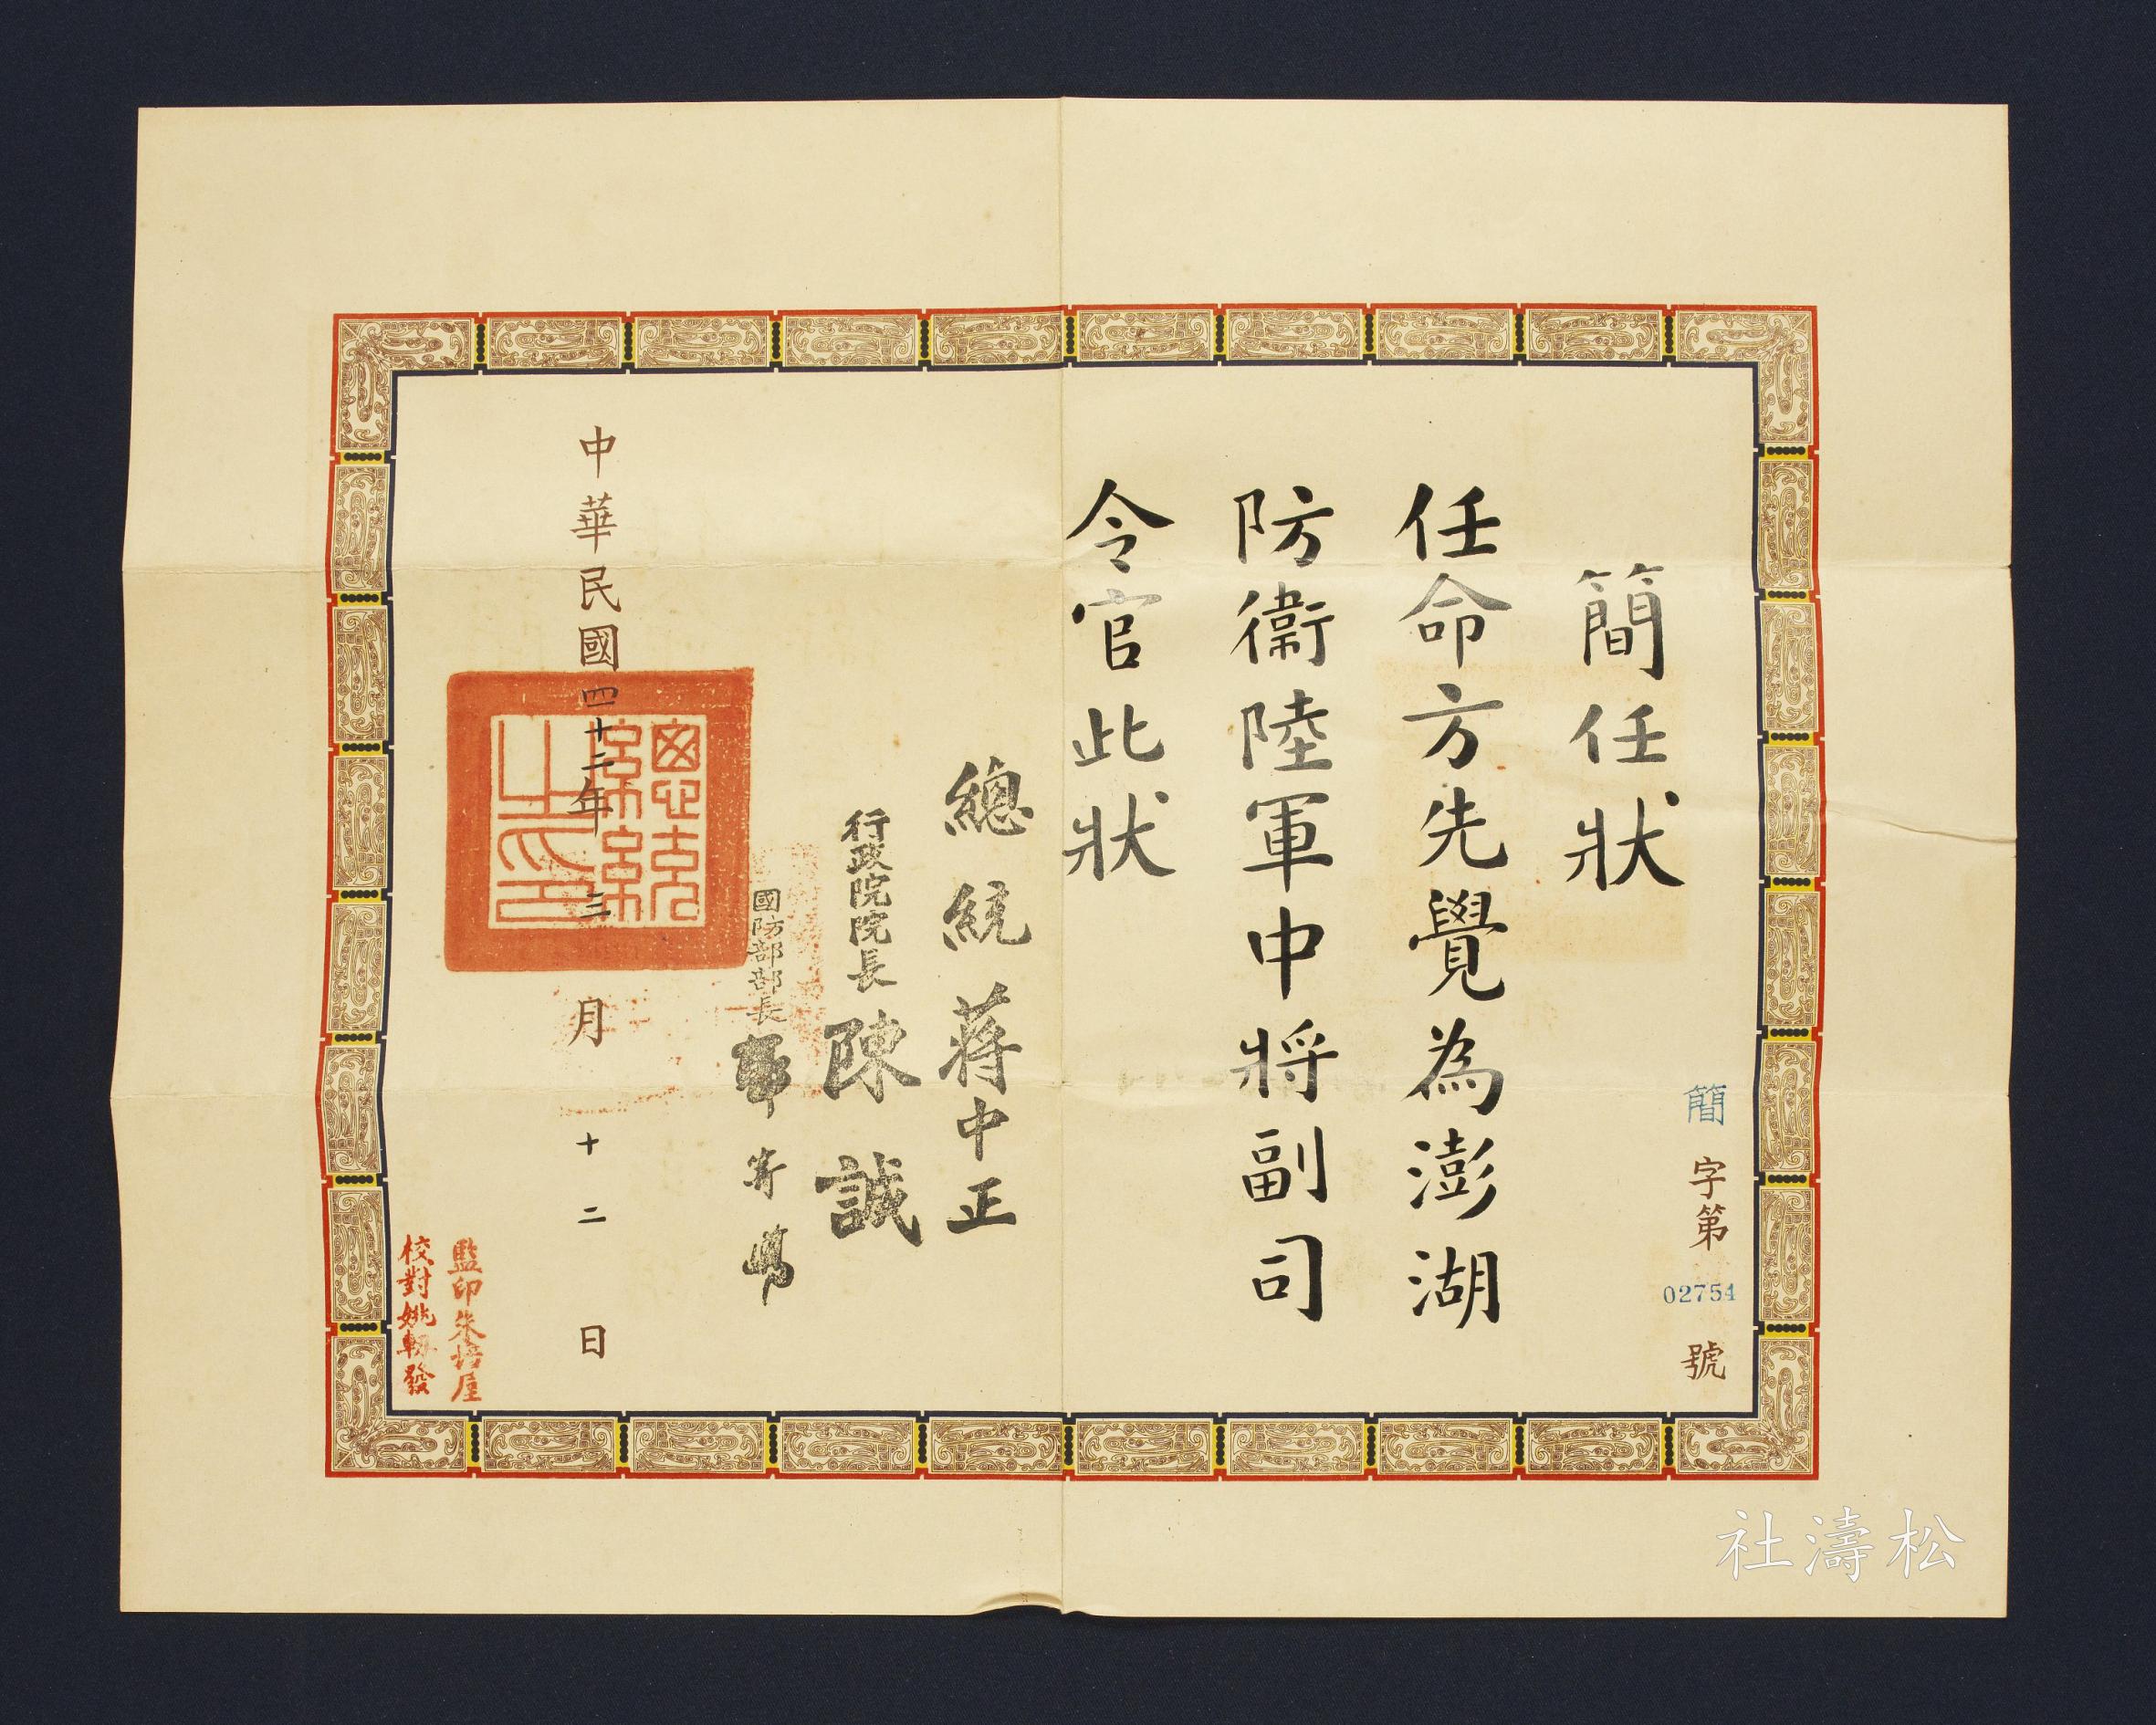 簡字第02754號
簡任狀
任命方先覺為澎湖
防衛陸軍中將副司
令官此狀
總統蔣中正
行政院院長陳誠
國防部部長郭寄嶠
中華民國四十三年三月十二日
總統之印
監印朱
校對姚發
松濤社